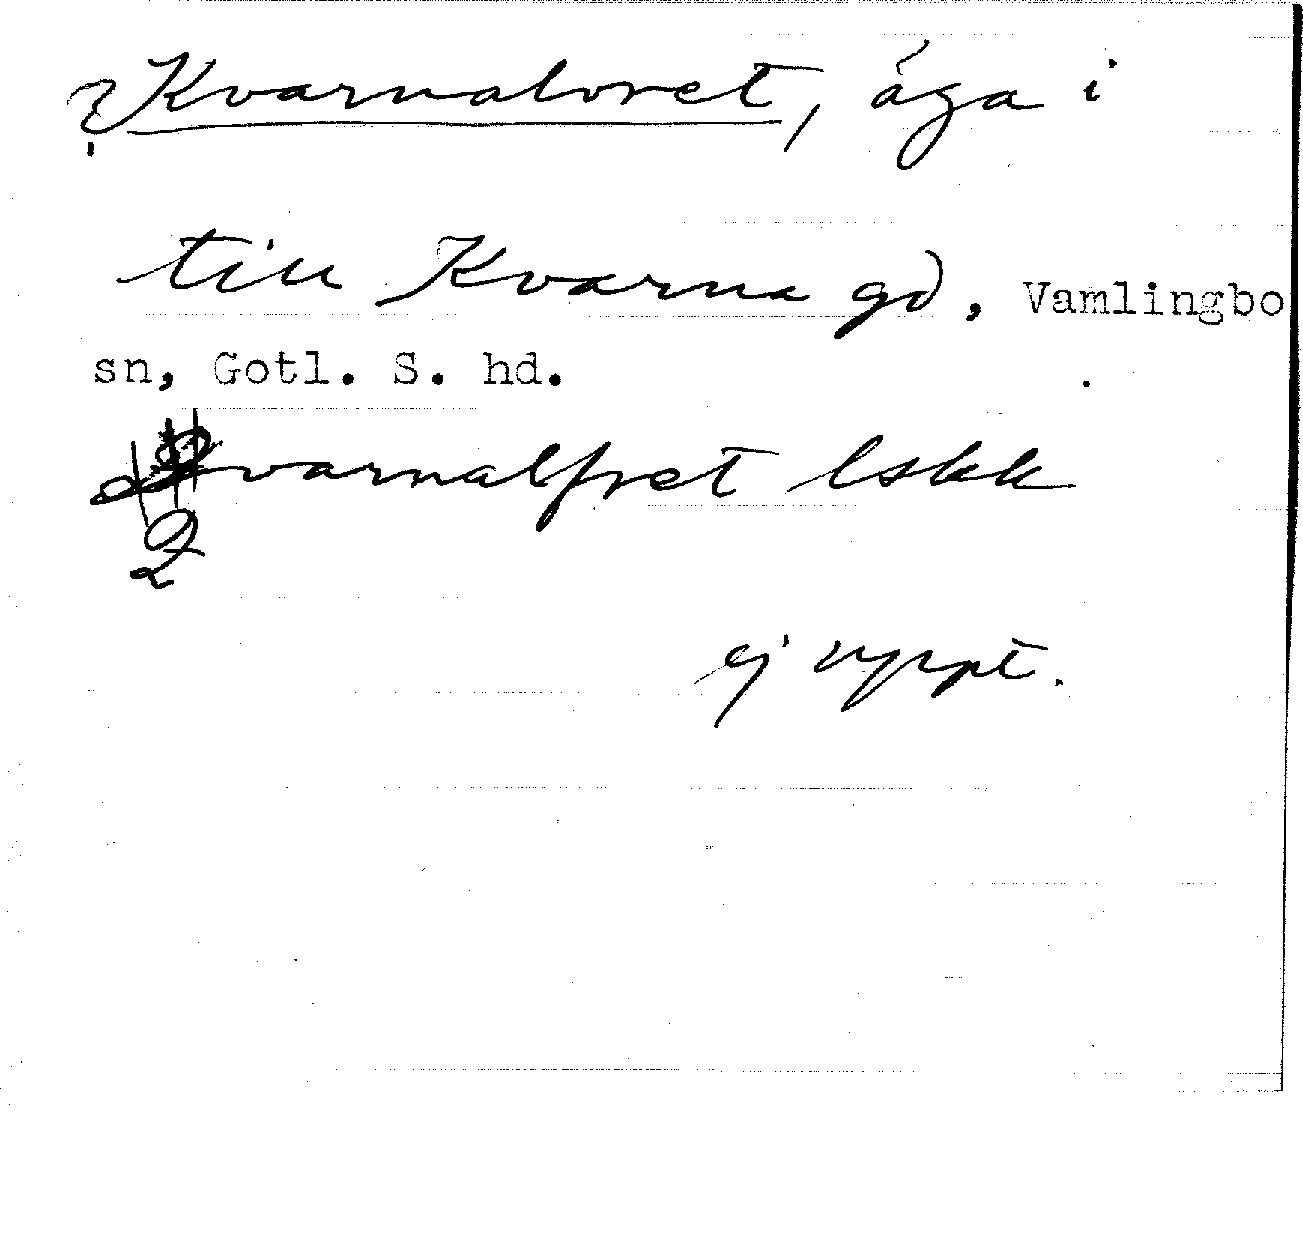 ? Kvarnalvret, äga i
till Kvarna gd, Vamlingbo
sn, Gotl. S. hd.
Qvarnalfret lskk
ej uppt.